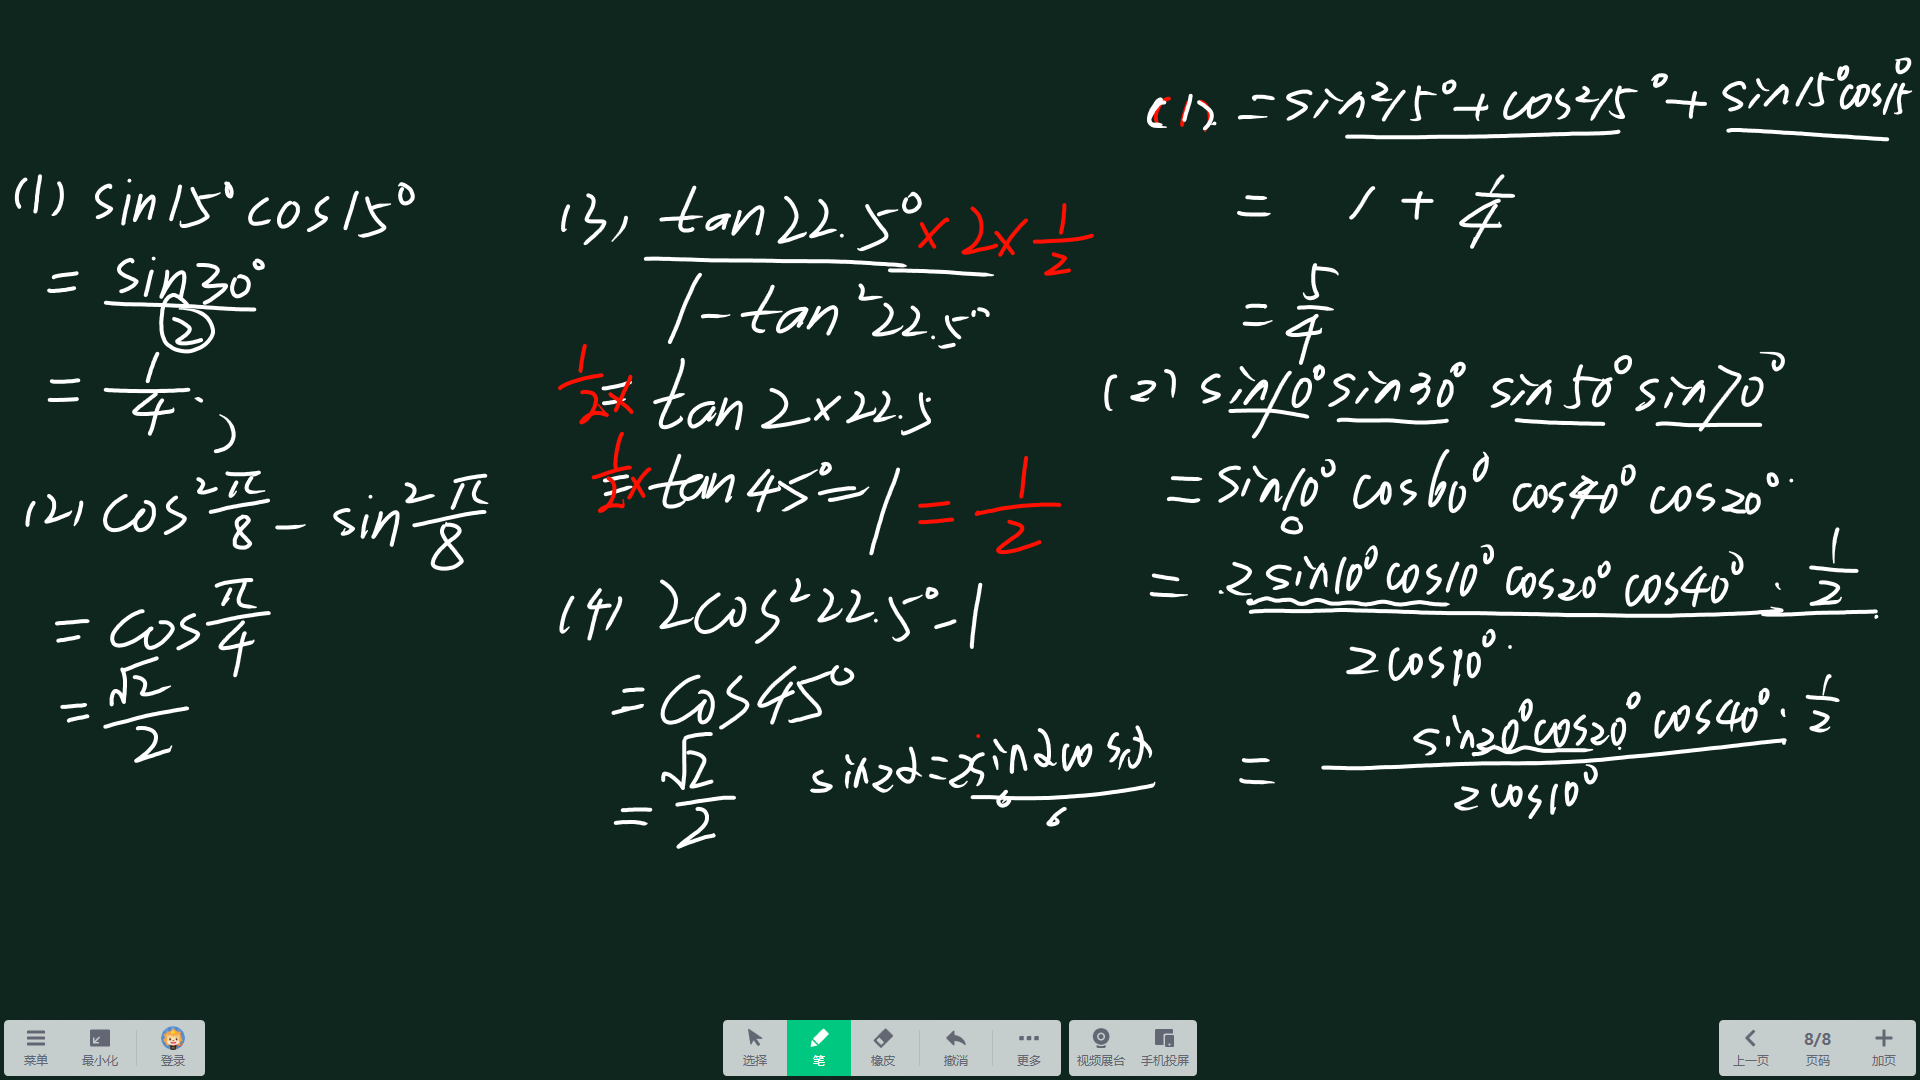 (1) sin15°cos15°
= sin30°/2
= 1/4.
(2) cos²π/8 - sin²π/8
= cosπ/4
= √2/2
(3) tan22.5° × 2 × 1/2 / 1-tan²22.5°
1/2 × = tan2×22.5
1/2 × = tan45° = 1 = 1/2
(4) 2cos²22.5°-1
= cos45°
= √2/2
sin2α=2sinαcosα
(1). =sin²15°+cos²15°+sin15°cos15°
= 1 + 1/4
= 5/4
(2) sin10°sin30°sin50°sin70°
= sin10°cos60°cos40°cos20°.
= 2sin10°cos10°cos20°cos40°·1/2 / 2cos10°
= sin20°cos20°cos40°·1/2 / 2cos10°
菜单 最小化 登录 选择 笔 橡皮 撤消 更多 视频展台 手机投屏 上一页 8/8 页码 加页